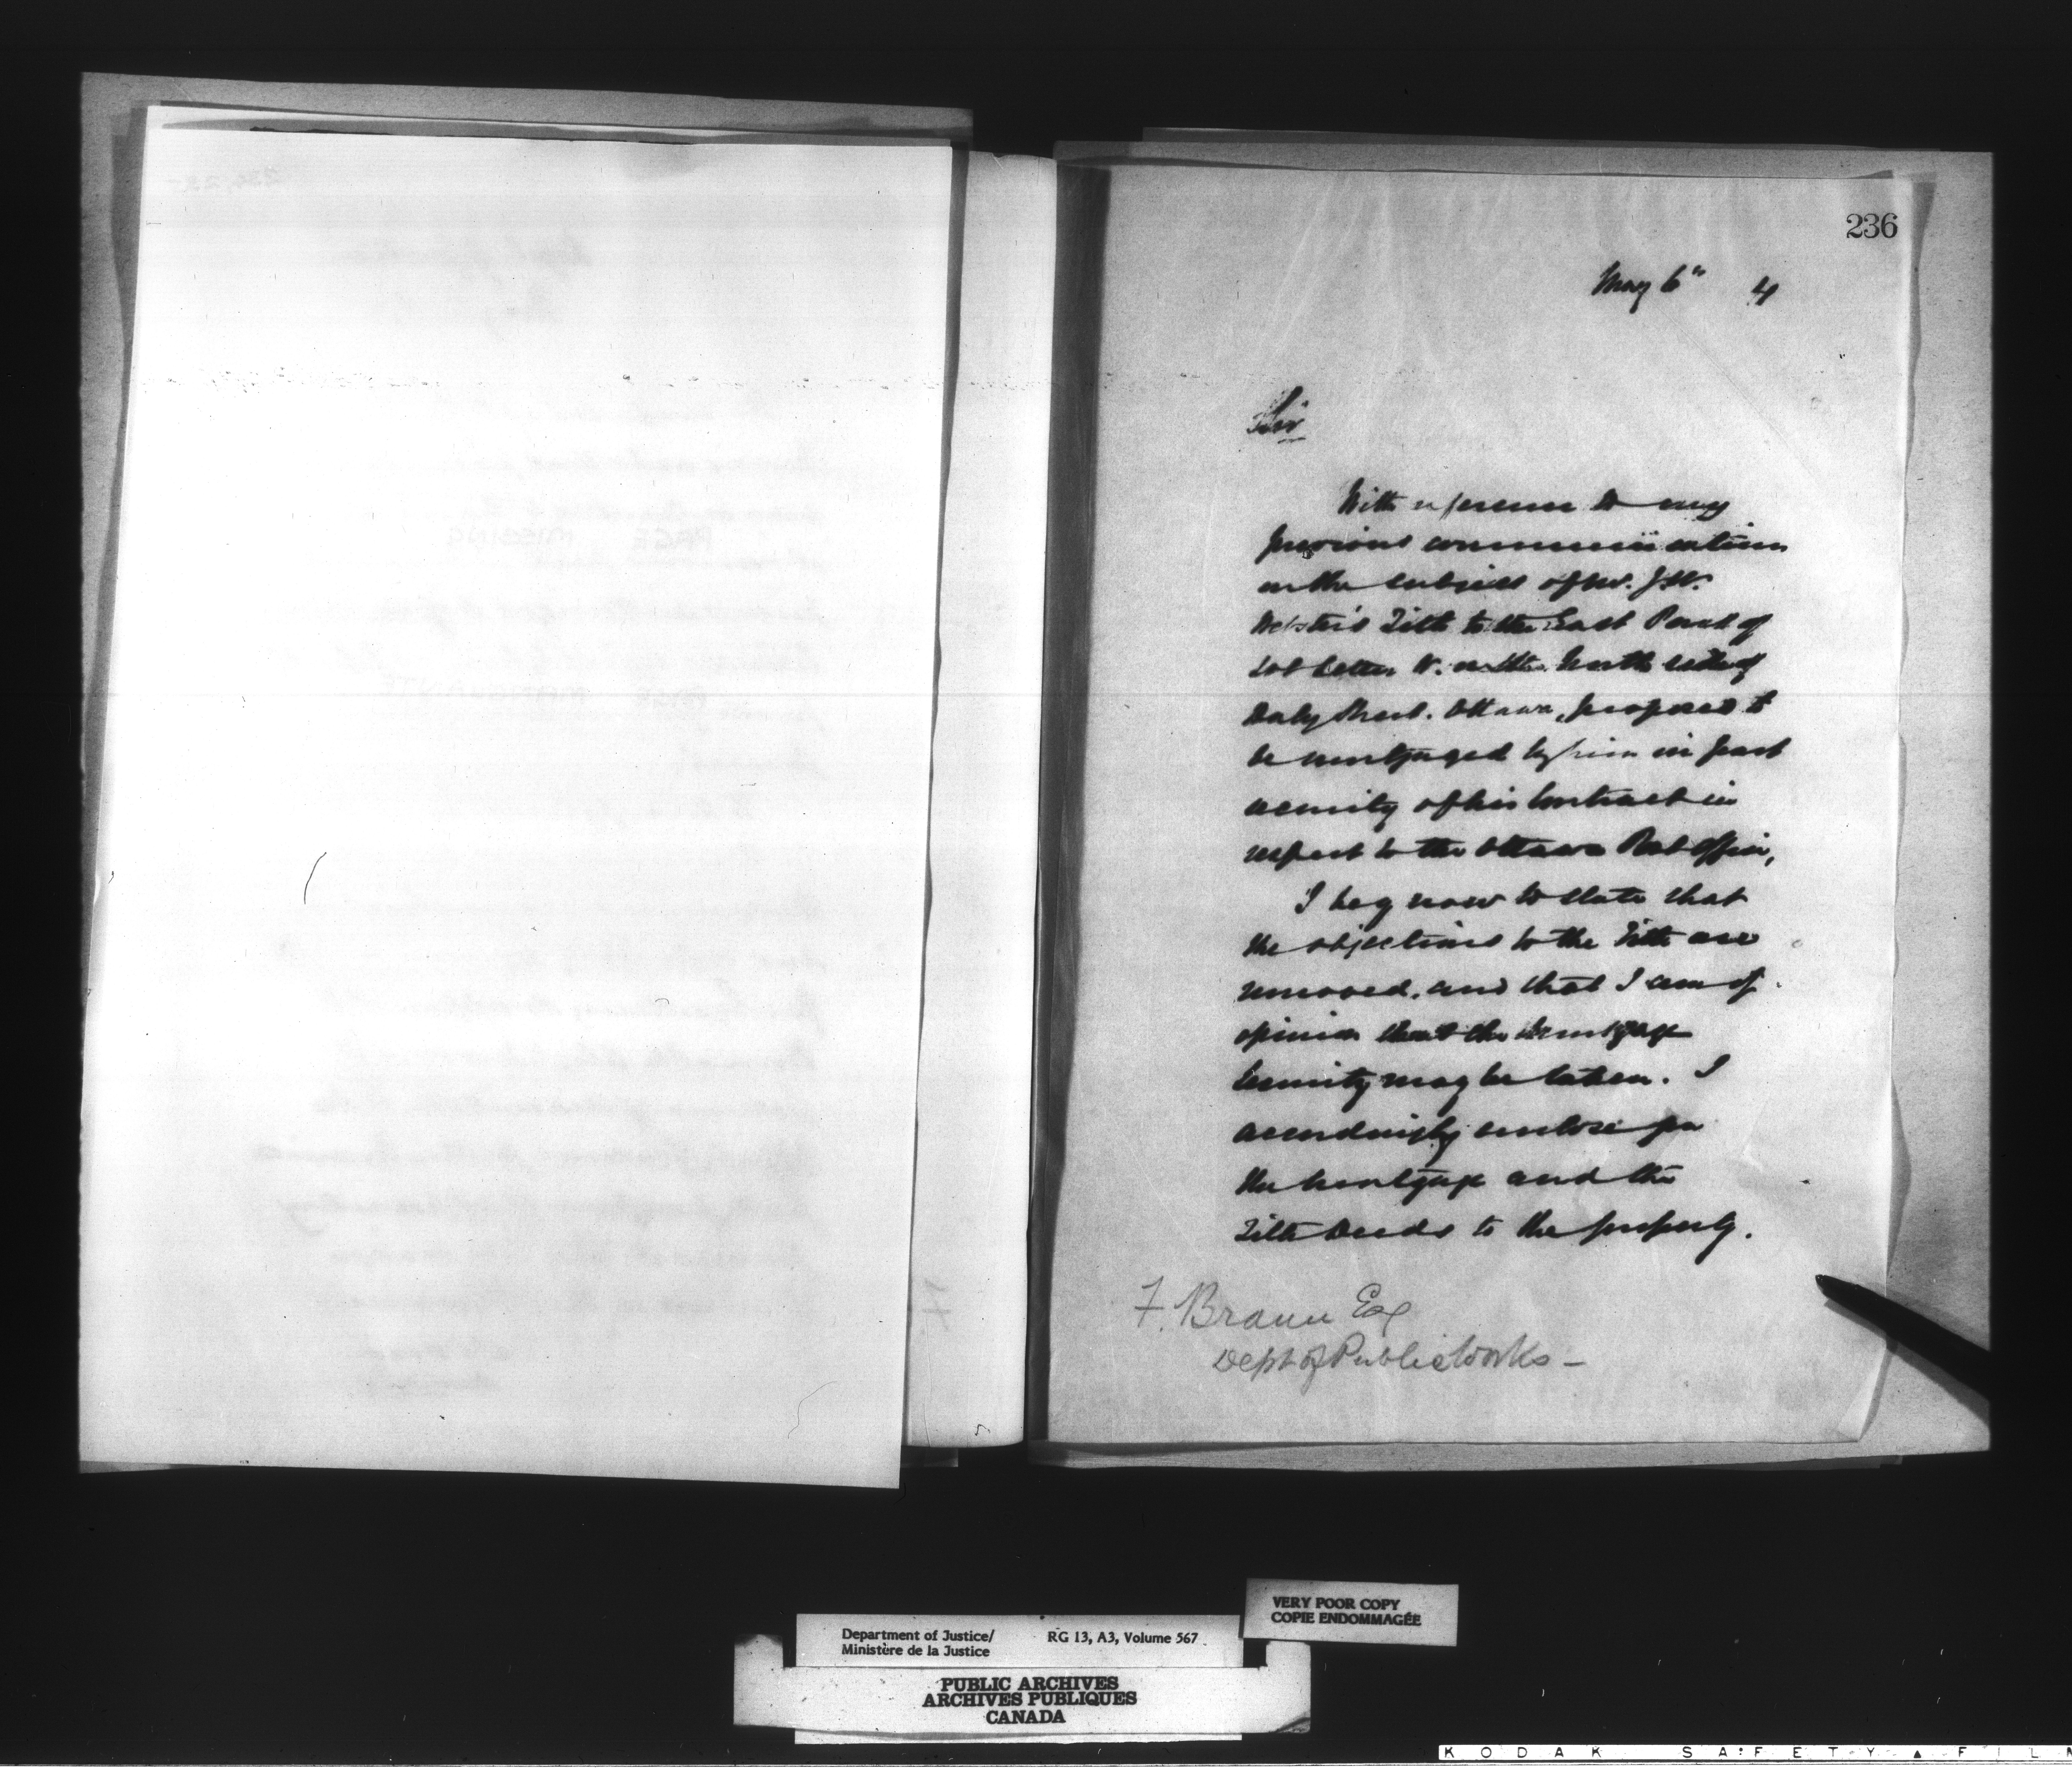 236
May 6" 4
Sir
With reference to my
previous communications
on the subject of Mr. J.W.
Webster's Title to the East Part of
Lot letter W. on the North side of
Daly Street. Ottawa, proposed to
be mortgaged by him in part
security of his Contract in
respect to the Ottawa Post Office,
I beg now to state that
the objections to the Title are
removed, and that I am of
opinion that the mortgage
Security may be taken. I
accordingly enclose you
the mortgage and the
Title Deeds to the property.
F. Braun Esq
Dept of Public Works -
VERY POOR COPY
COPIE ENDOMMAGÉE
Department of Justice/ RG 13, A3, Volume 567
Ministère de la Justice
PUBLIC ARCHIVES
ARCHIVES PUBLIQUES
CANADA
KODAK SAFETY ▲ FILM